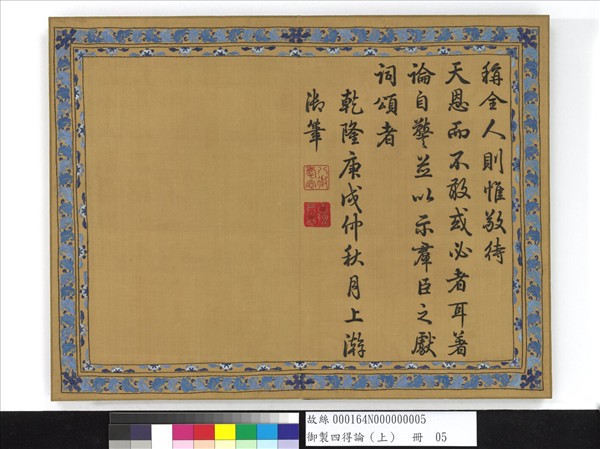 稱全人則惟敬待
天恩而不敢或必者耳著
論自警並以示羣臣之獻
詞頌者
乾隆庚戌仲秋月上澣
御筆
故絲 000164N000000005
御製四得論(上) 冊 05